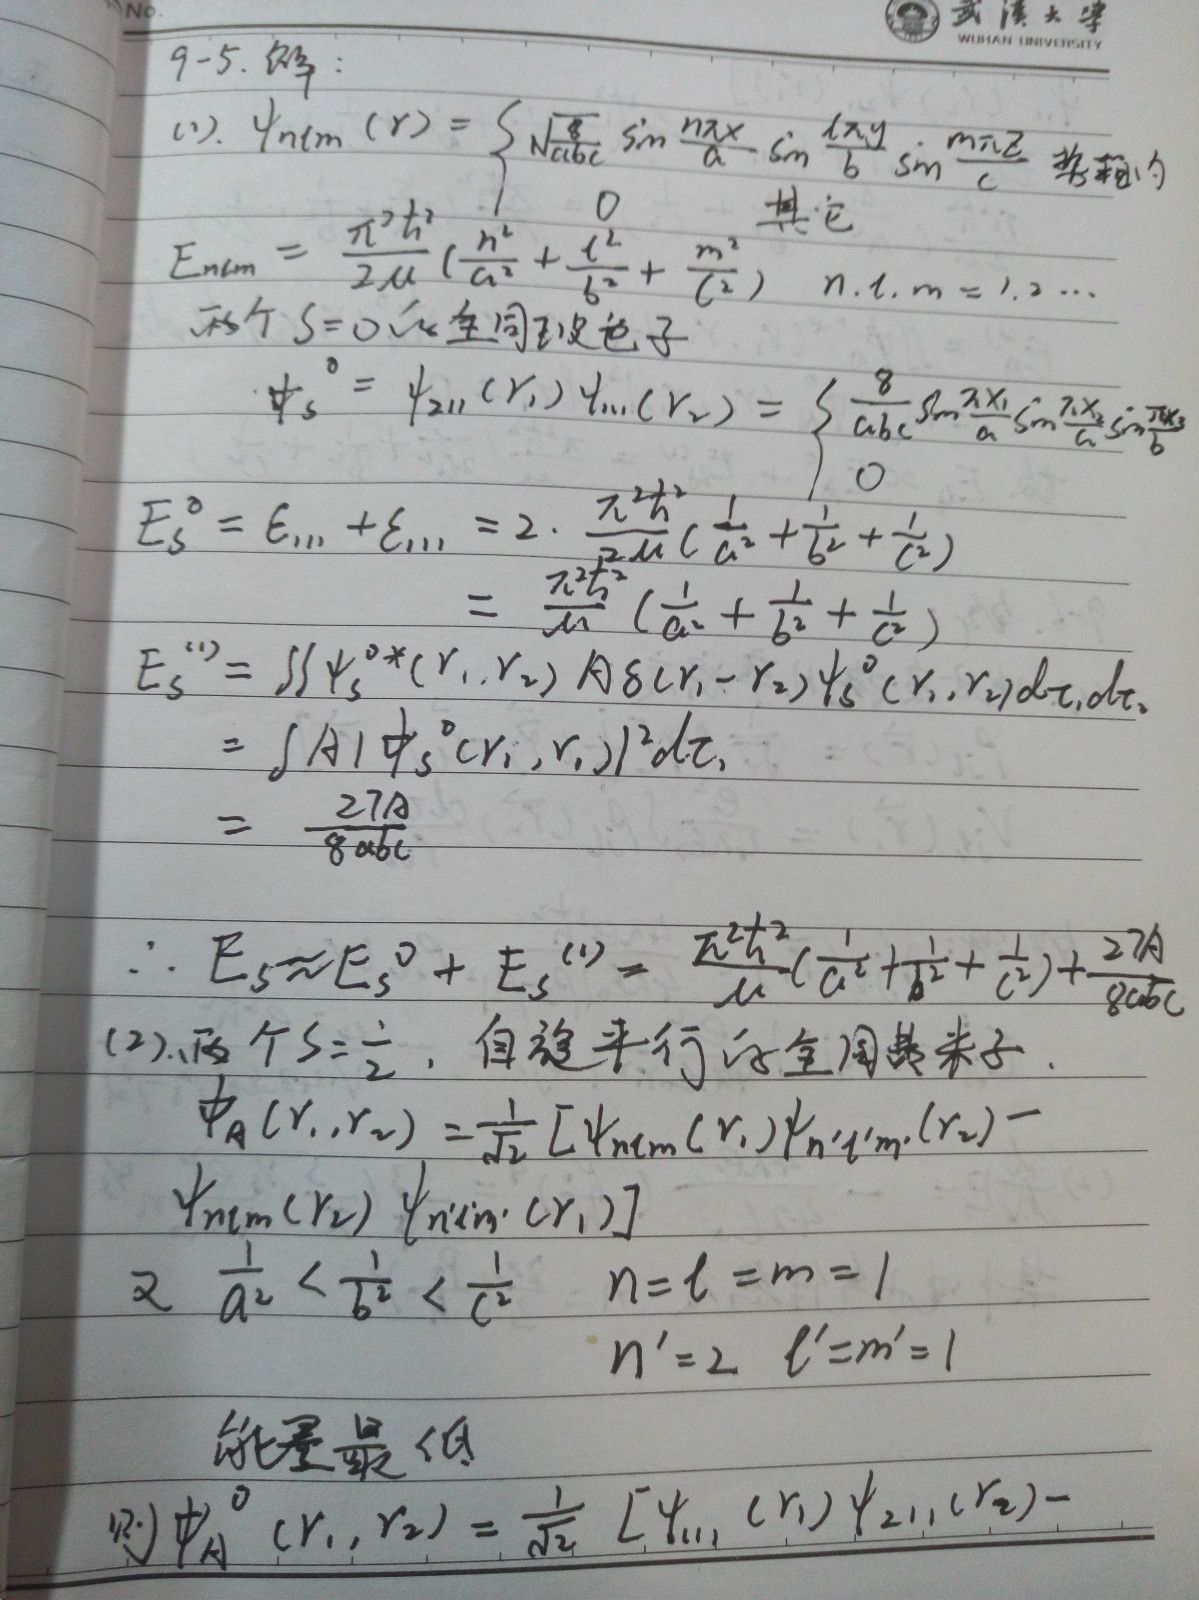 No.
武汉大学
WUHAN UNIVERSITY
9-5. 解:
(1). ψnlm (r) = { √(8/abc) sin nπx/a sin lπy/b sin mπz/c 势箱内
0 其它
Enlm = π²ħ²/2μ (n²/a² + l²/b² + m²/c²) n.l.m = 1.2 ...
两个 S=0 的全同玻色子
ψs⁰ = ψ211 (r1) ψ111 (r2) = { 8/abc sin πx1/a sin πx2/a sin πx3/b
0
Es⁰ = ε111 + ε111 = 2 · π²ħ²/2μ (1/a² + 1/b² + 1/c²)
= π²ħ²/μ (1/a² + 1/b² + 1/c²)
Es⁽¹⁾ = ∫∫ ψs⁰* (r1, r2) A δ(r1 - r2) ψs⁰ (r1, r2) dτ1 dτ2
= ∫ A | ψs⁰ (r1, r1) |² dτ1
= 27A/8abc
∴ Es ≈ Es⁰ + Es⁽¹⁾ = π²ħ²/μ (1/a² + 1/b² + 1/c²) + 27A/8abc
(2). 两个 S = 1/2, 自旋平行的全同费米子.
ψA (r1, r2) = 1/√2 [ψnlm (r1) ψn'l'm' (r2) −
ψnlm (r2) ψn'l'm' (r1)]
又 1/a² < 1/b² < 1/c² n = l = m = 1
n' = 2 l' = m' = 1
能量最低
则 ψA⁰ (r1, r2) = 1/√2 [ψ111 (r1) ψ211 (r2) −